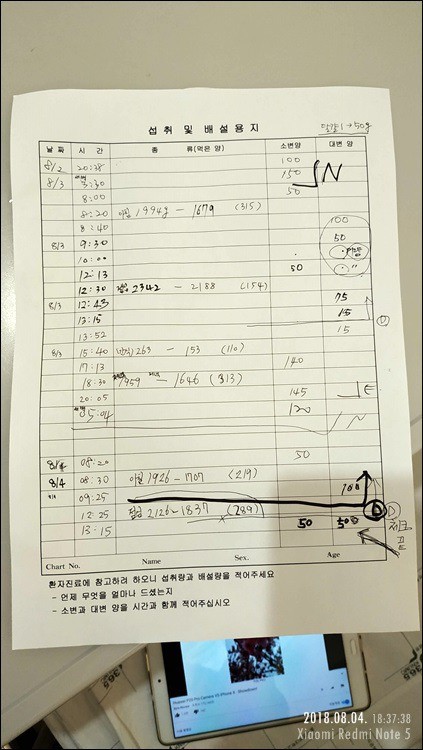 섭 취 및 배 설 용 지
날 짜 시 간 종 류(먹은 양) 소변양 대변 양
8/2 20:38 100
8/3 5:30 150 N
8:00 50
8:20 아침 1994g - 1679 (315)
8:40 100
8/3 9:30 50
10:00
12:13 50 "
12:30 점심 2342 - 2188 (154)
8/3 12:43 75
13:15 15 D
13:52 15
8/3 15:40 간식 263 - 153 (110)
17:13 140
18:30 1959 - 1646 (313)
20:05 145 E
05:04 120 N
8/4 08:20 50
8/4 08:30 아침 1926 - 1707 (219) 100
8/4 09:25 D
12:25 점심 2126 - 1837 (289)
13:15 50 50
Chart No. Name Sex. Age
환자진료에 참고하려 하오니 섭취량과 배설량을 적어주세요
- 언제 무엇을 얼마나 드셨는지
- 소변과 대변 양을 시간과 함께 적어주십시오
2018.08.04. 18:37:38
Xiaomi Redmi Note 5